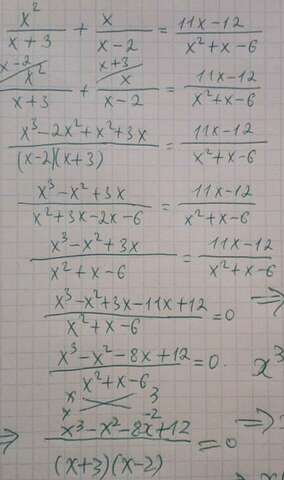 x²/(x+3) + x/(x-2) = (11x-12)/(x²+x-6)
x-2 x+3
x²/(x+3) + x/(x-2) = (11x-12)/(x²+x-6)
(x³-2x²+x²+3x)/((x-2)(x+3)) = (11x-12)/(x²+x-6)
(x³-x²+3x)/(x²+3x-2x-6) = (11x-12)/(x²+x-6)
(x³-x²+3x)/(x²+x-6) = (11x-12)/(x²+x-6)
(x³-x²+3x-11x+12)/(x²+x-6) = 0 ⇒
(x³-x²-8x+12)/(x²+x-6) = 0. x³
x 3
x -2
⇒ (x³-x²-8x+12)/((x+3)(x-2)) = 0 ⇒